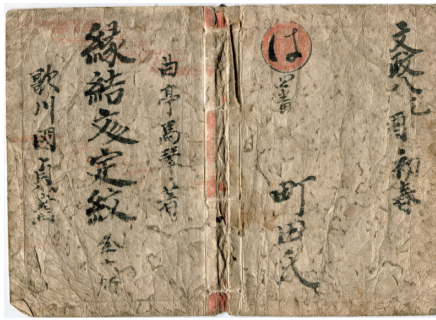 文政八乙酉初春
は
町田氏
曲亭馬琴著
縁結文定紋 全一冊
歌川國貞画